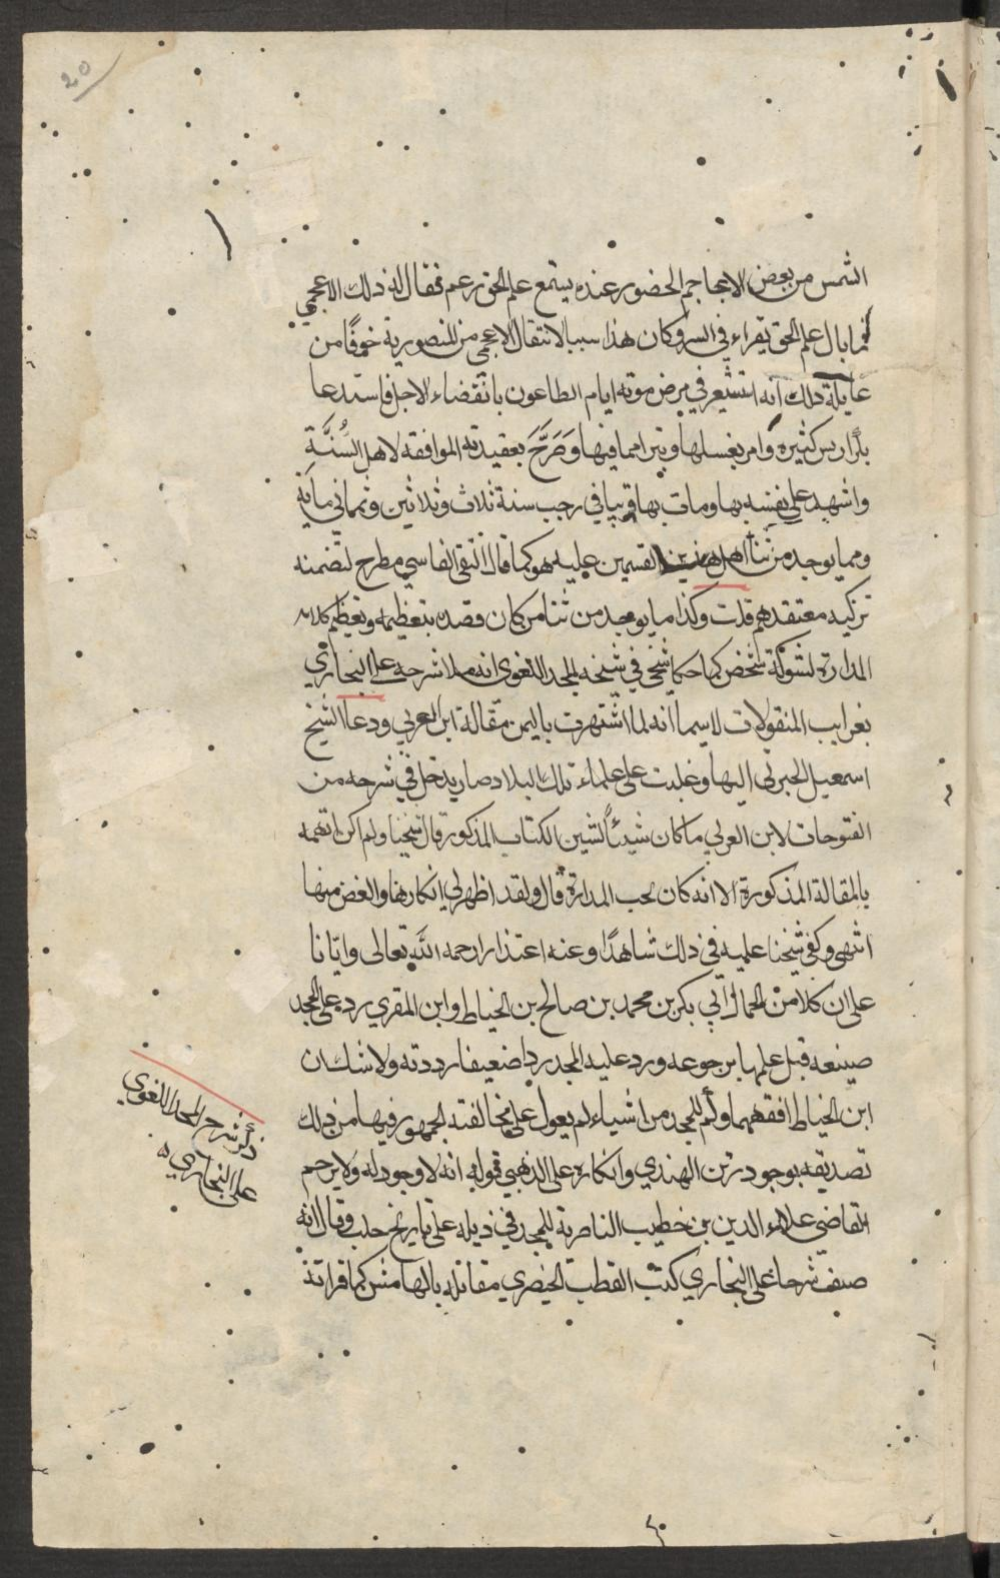 20
الشمس من بعض الاعاجم الحضور عنده يستمع علم الحق بزعم فقال له ذلك الاعجمي
ما بال علم الحق يقراء في السر وكان هذا سببا لانتقال الاعجمي من المنصورية خوفا من
غايلة ذلك انه استشعر في مرض موته ايام الطاعون بانقضاء الاجل فاستدعا
بكراريس كثيرة وامر بغسلها وتبرا مما فيها وَصَرَّحَ بعقيدته الموافقة لاهل السُّنَّة
واشهد على نفسه بها ومات بها قريبا في رجب سنة ثلاث وثلاثين وثماني ماية
ومما يوجد من ثنا اهل هذين القسمين عليه هو كما قال التقي الفاسي مطرح لتضمنه
تزكية معتقدهم قلت وكذا ما يوجد من ثنا من كان قصده بتعظيمه وتعظيم كلامه
المداراة لشوكة شخص كما حكا شيخي في شيخه المجد اللغوي انه ملا شرحه على البخاري
بغرايب المنقولات لاسيما انه لما اشتهرت باليمن مقالة ابن العربي ودعا الشيخ
اسمعيل الجبرتي اليها وغلبت على علماء تلك البلاد صار يدخل في شرحه من
الفتوحات لابن العربي ما كان شيئاً لشين الكتاب المذكور قال شيخنا ولم اكن اتهمه
بالمقالة المذكورة الا انه كان يحب المداراة قال ولقد اظهر لي انكارها والغض منها
انتهى وكفى شيخنا عليه في ذلك شاهدًا وعنه اعتذارا رحمه الله تعالى وايانا
على ان كلا من الجمال ابي بكر بن محمد بن صالح بن الخياط وابن المقري رد على المجد
صنيعه قبل علمها برجوعه ورد عليه المجد ردا ضعيفا رددته ولا شك ان
ابن الخياط افقههما ولم للمجد من اشياء لم يعول على مخالفته الجمهور فيها من ذلك
تصديقه بوجود رتن الهندي وانكاره على الذهبي قوله انه لا وجود له ولا يرحم
القاضي علاء الدين بن خطيب الناصرية للمجد في ذيله على تاريخ حلب وقال انه
صنف شرحا على البخاري كتب القطب الخيضري مقابله بالهامش كما قراته
ذكر شرح المجد اللغوي
على البخاري ه